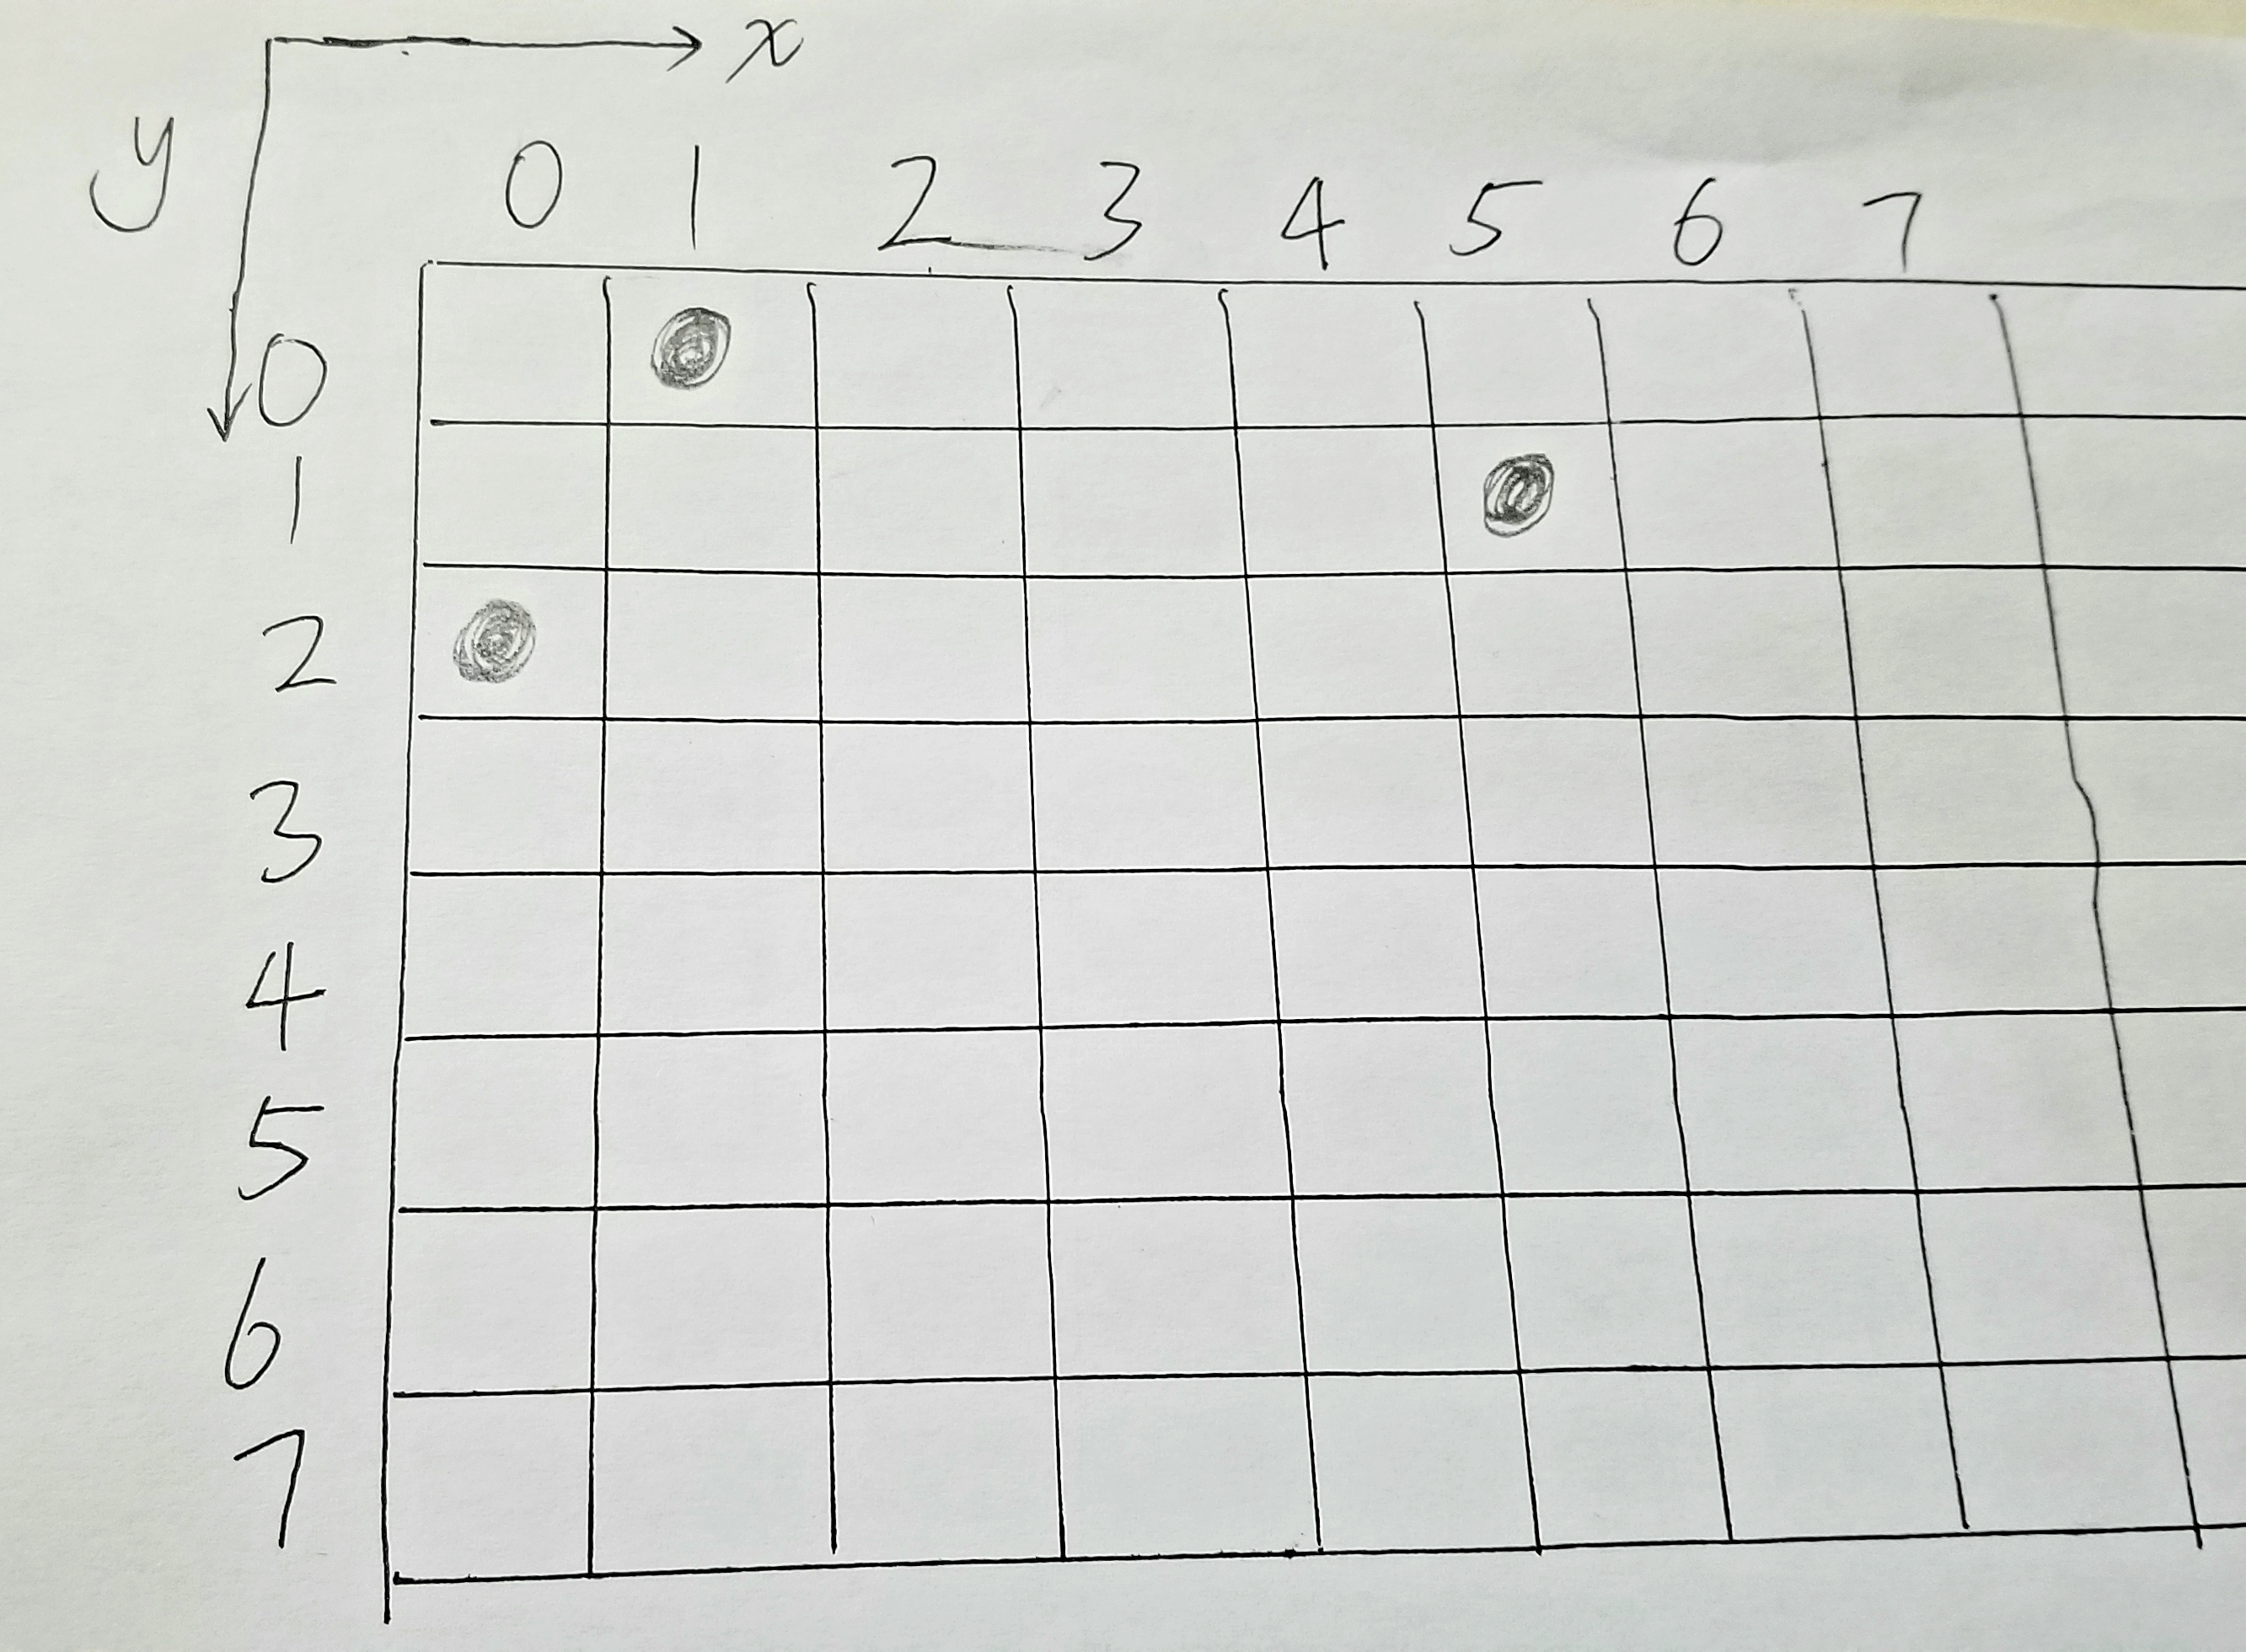 x
y
0 1 2 3 4 5 6 7
0
1
2
3
4
5
6
7